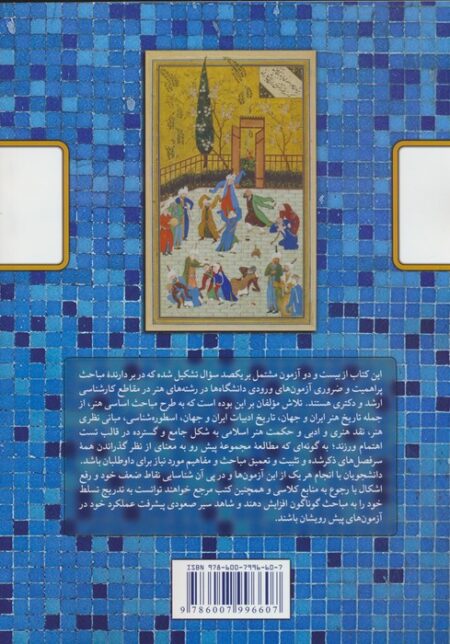 این کتاب از بیست و دو آزمون مشتمل بر یکصد سؤال تشکیل شده که در بر دارندهٔ مباحث
پراهمیت و ضروری آزمون‌های ورودی دانشگاه‌ها در رشته‌های هنر در مقاطع کارشناسی
ارشد و دکتری هستند. تلاش مؤلفان بر این بوده است که به طرح مباحث اساسی هنر، از
جمله تاریخ هنر ایران و جهان، تاریخ ادبیات ایران و جهان، اسطوره‌شناسی، مبانی نظری
هنر، نقد هنری و ادبی و حکمت هنر اسلامی به شکل جامع و گسترده در قالب تست
اهتمام ورزند؛ به گونه‌ای که مطالعهٔ مجموعهٔ پیش رو به معنای از نظر گذراندن همهٔ
سرفصل‌های ذکر شده و تثبیت و تعمیق مباحث و مفاهیم مورد نیاز برای داوطلبان باشد.
دانشجویان با انجام هر یک از این آزمون‌ها و در پی آن شناسایی نقاط ضعف خود و رفع
اشکال با رجوع به منابع کلاسی و همچنین کتب مرجع خواهند توانست به تدریج تسلط
خود را به مباحث گوناگون افزایش دهند و شاهد سیر صعودی پیشرفت عملکرد خود در
آزمون‌های پیش رویشان باشند.
ISBN 978-600-7996-60-7
9 786007 996607